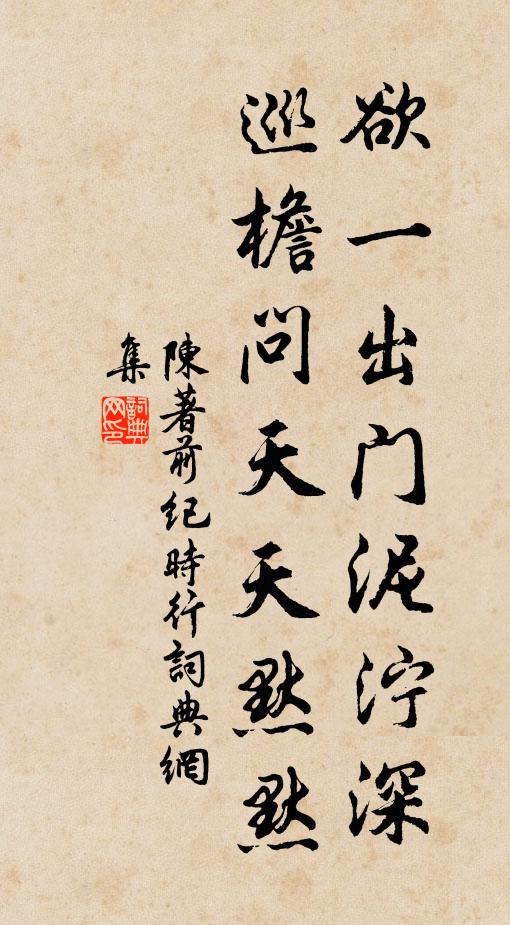 欲一出门泥泞深
巡檐问天天默默
陳著前纪時行詞典網
集
詞典网印